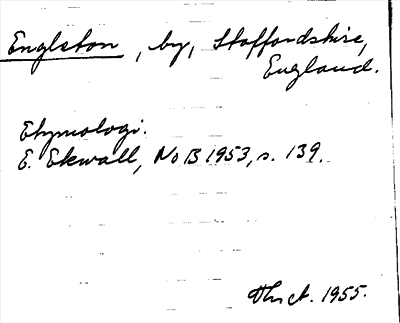 Englston, by, Staffordshire,
England.
Etymologi.
E. Ekwall, NoB 1953, s. 139.
1955.